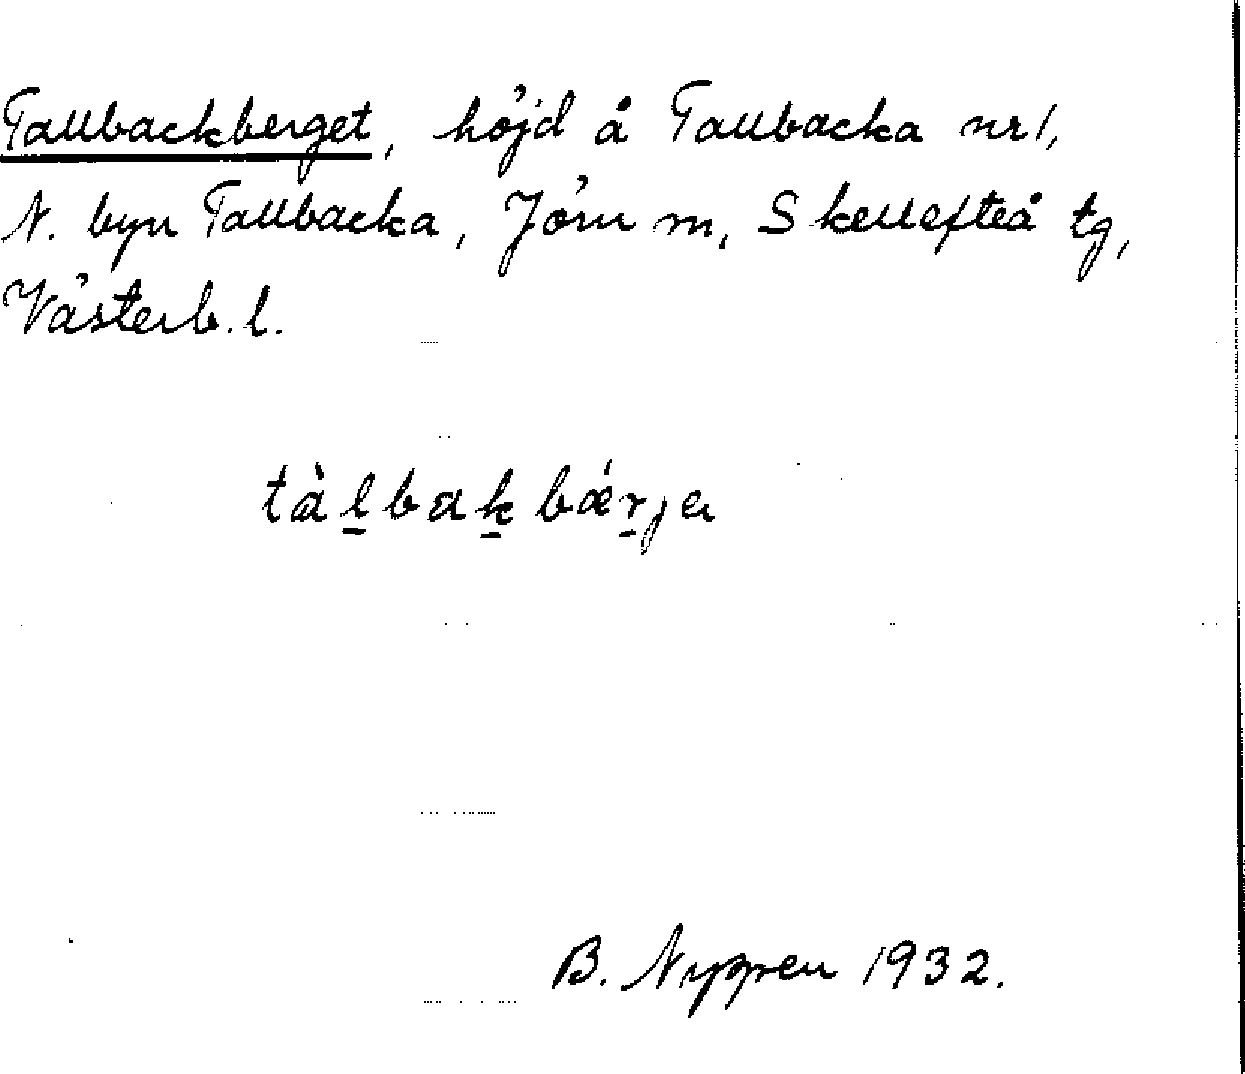 Tallbackberget, höjd å Tallbacka nr 1,
N. byn Tallbacka, Jörn m, Skellefteå tg,
Västerb. l.
tàl̲bak̲bǽr̲ja
B. 1932.